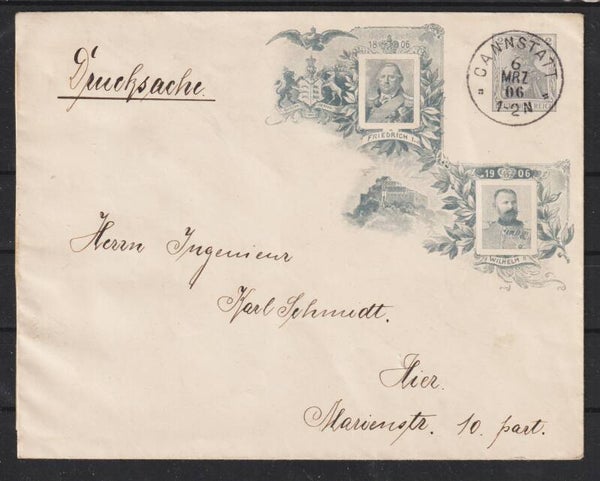 Drucksache.
1806
FRIEDRICH I.
CANNSTATT
6
MRZ
06
1-2N
REICH
1906
WILHELM II
Herrn Ingenieur
Karl Schmidt.
Hier.
Marienstr. 10 part.